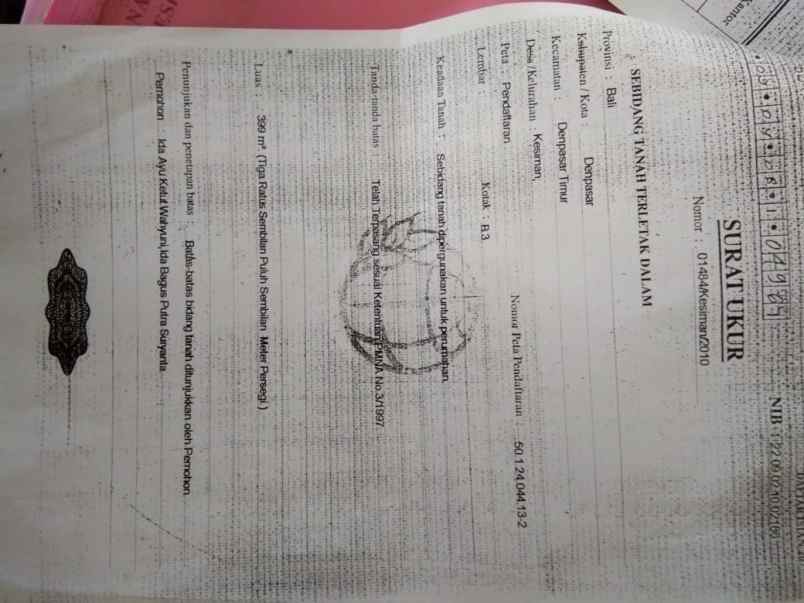 NIB
SURAT UKUR
Nomor : 01484/Kesiman/2010
SEBIDANG TANAH TERLETAK DALAM
Provinsi : Bali
Kabupaten / Kota : Denpasar
Kecamatan : Denpasar Timur
Desa /Kelurahan : Kesiman,
Peta : Pendaftaran Nomor Peta Pendaftaran : 50.1 24.044.13-2
Lembar : Kotak :
Keadaan Tanah : Sebidang tanah dipergunakan untuk perumahan,
Tanda-tanda batas : Telah Terpasang sesuai Ketentuan PMNA No.3/1997
Luas : 399 m². (Tiga Ratus Sembilan Puluh Sembilan Meter Persegi.)
Penunjukan dan penetapan batas : Batas-batas bidang tanah ditunjukkan oleh Pemohon.
Pemohon : Ida Ayu Ketut Wahyuni,Ida Bagus Putra Suryanta